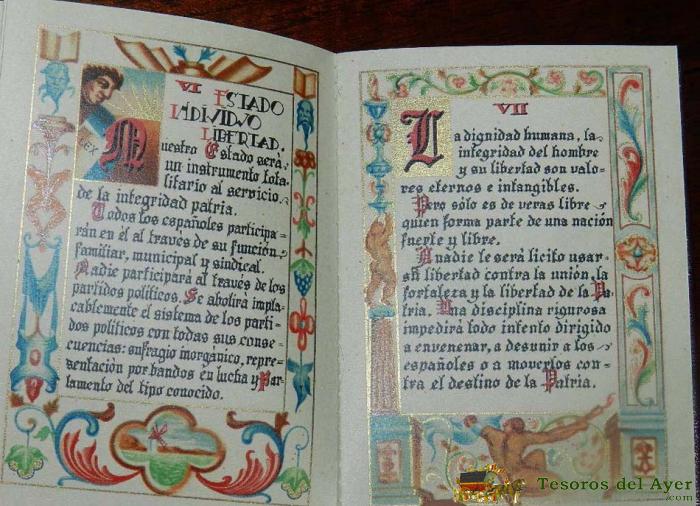 VI ESTADO
INDIVIDUO
LIBERTAD.
LEX
Nuestro Estado será
un instrumento tota=
litario al servicio
de la integridad patria.
Todos los españoles participa=
rán en él al través de su función
familiar, municipal y sindical.
Nadie participará al través de los
partidos políticos. Se abolirá impla=
cablemente el sistema de los parti=
dos políticos con todas sus conse=
cuencias: sufragio inorgánico, repre=
sentación por bandos en lucha y Par=
lamento del tipo conocido.
VII
La dignidad humana, la
integridad del hombre
y su libertad son valo=
res eternos e intangibles.
Pero sólo es de veras libre
quien forma parte de una nación
fuerte y libre.
A nadie le será lícito usar
su libertad contra la unión, la
fortaleza y la libertad de la Pa=
tria. Una disciplina rigurosa
impedirá todo intento dirigido
a envenenar, a desunir a los
españoles o a moverlos con=
tra el destino de la Patria.
Tesoros del Ayer
.com